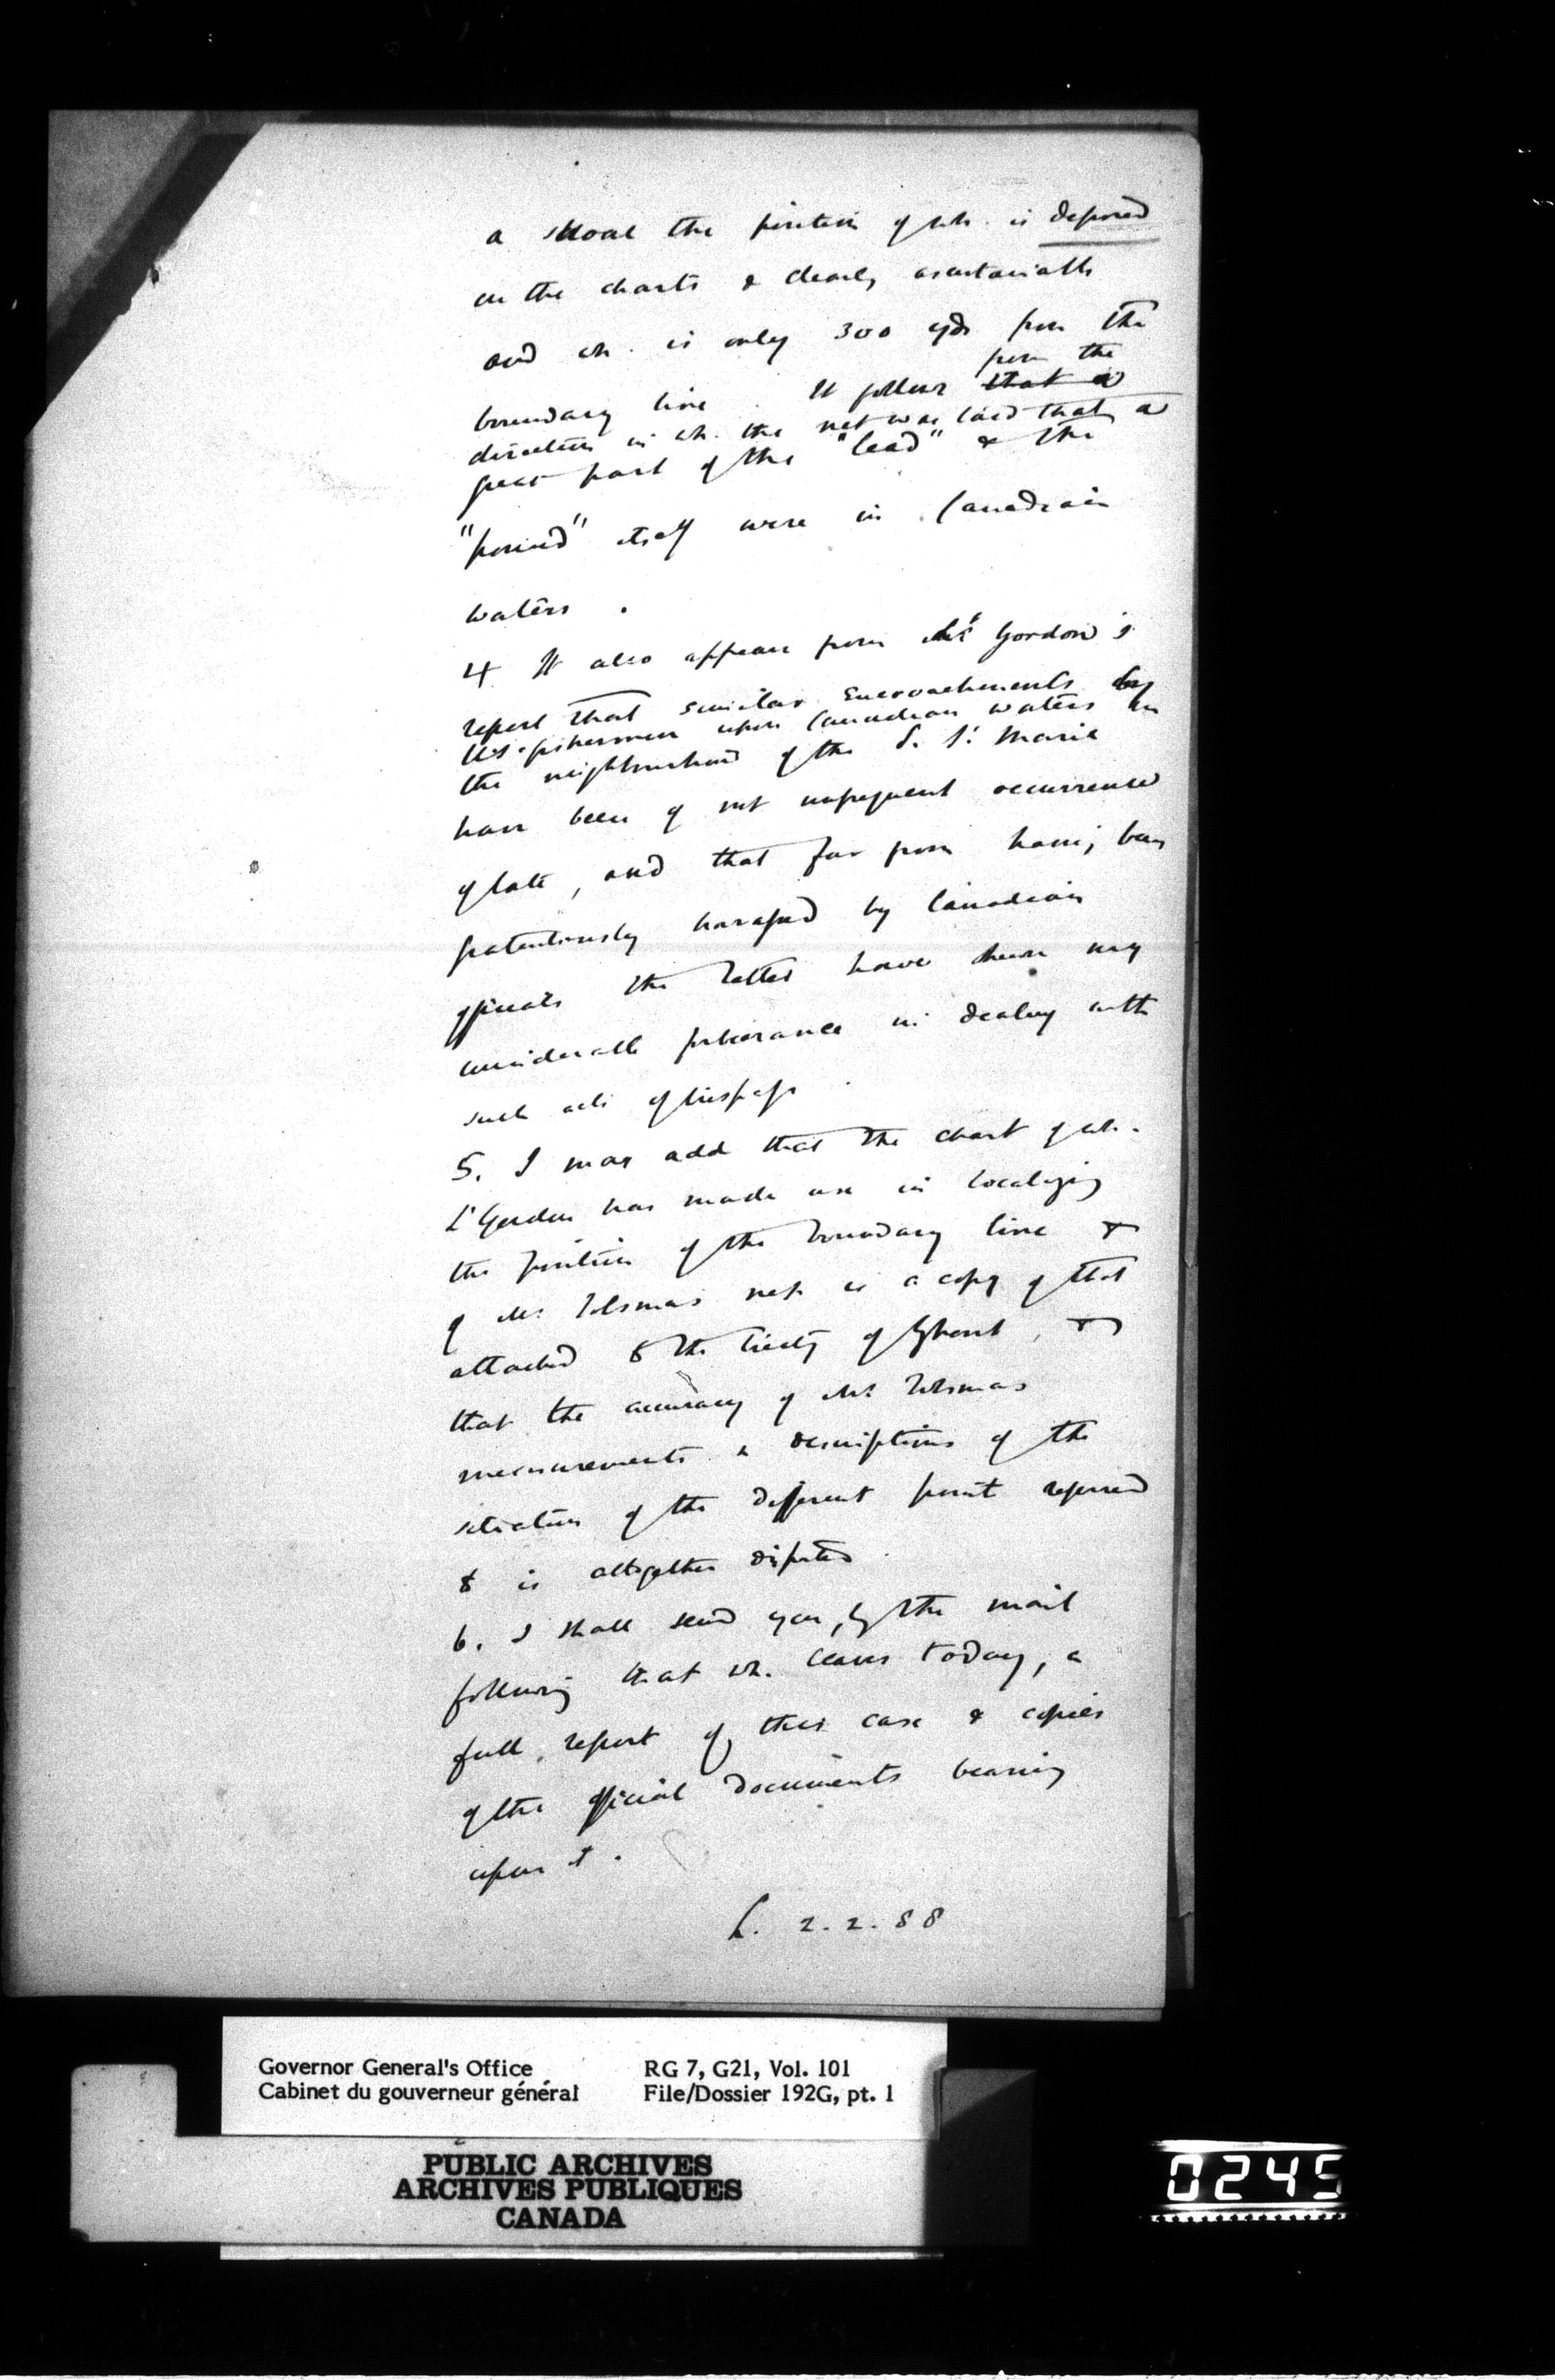 a shoal the position of wh. is defined
on the charts & clearly ascertainable
and wh. is only 300 yds from the
boundary line. It follows that a from the
direction in wh. the net was laid that a
great part of the "lead" & the
"pound" itself were in Canadian
waters.
4 It also appears from Lt Gordon's
report that similar encroachments by
U.S. fishermen upon Canadian waters in
the neighbourhood of the S. St Marie
have been of not unfrequent occurrence
of late, and that far from having been
gratuitously harassed by Canadian
officials the latter have shewn very
considerable forbearance in dealing with
such acts of trespass.
5. I may add that the chart of wh.
Lt Gordon has made use in localizing
the position of the boundary line &
of Mr net is a copy of that
attached to the Treaty of Ghent, &
that the accuracy of Mr
measurements & descriptions of the
situation of the different point referred
to is altogether disputed.
6. I shall send you, by the mail
following that wh. leaves today, a
full report of this case & copies
of the official documents bearing
upon it.
L. 2.2.88
Governor General's Office
Cabinet du gouverneur général
RG 7, G21, Vol. 101
File/Dossier 192G, pt. 1
PUBLIC ARCHIVES
ARCHIVES PUBLIQUES
CANADA
0245